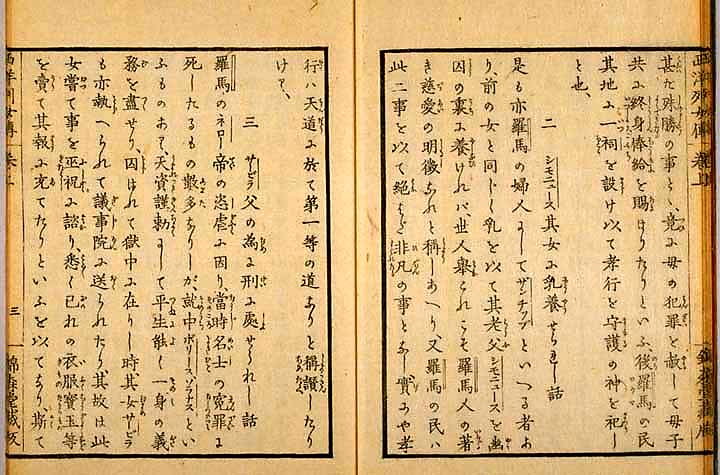 西洋列女傳 巻上
甚た殊勝の事とし、竟に母の犯罪を赦して母子
共に終身俸給を賜はりたりといふ、後羅馬の民
其地に一祠を設け以て孝行を守護の神を祀し
と也、
二 シモニュース其女に乳養せられし話
是も亦羅馬の婦人にしてザンチップといへる者よ
り、前の女と同じく乳を以て其老父シモニュースを幽
囚の裏に養けれバ、世人舉られこそ羅馬人の著
き慈愛の明徴なれと稱しあへり又羅馬の民ハ
此二事を以て絶えず非凡の事となし實にや孝
行ハ天道に於て第一等の道なりと稱讃したり
けり、
三 サビラ父の為に刑に處せられし話
羅馬のネロー帝の恣虐に因り、當時名士の寃罪に
死したるもの數多ありしが、就中ボリース、ソナスとい
ふものあり、天資謹勅にして平生能く一身の義
務を盡せり、囚はれて獄中に在りし時其女サビラ
も亦執へられて議事院に送られたり、其故は此
女嘗て事を巫祝に諮り、悉く己れの衣服寳玉等
を賣て其報に充てたりといふを以てなり、斯て
西洋列女傳 巻上
三
錦森堂蔵版